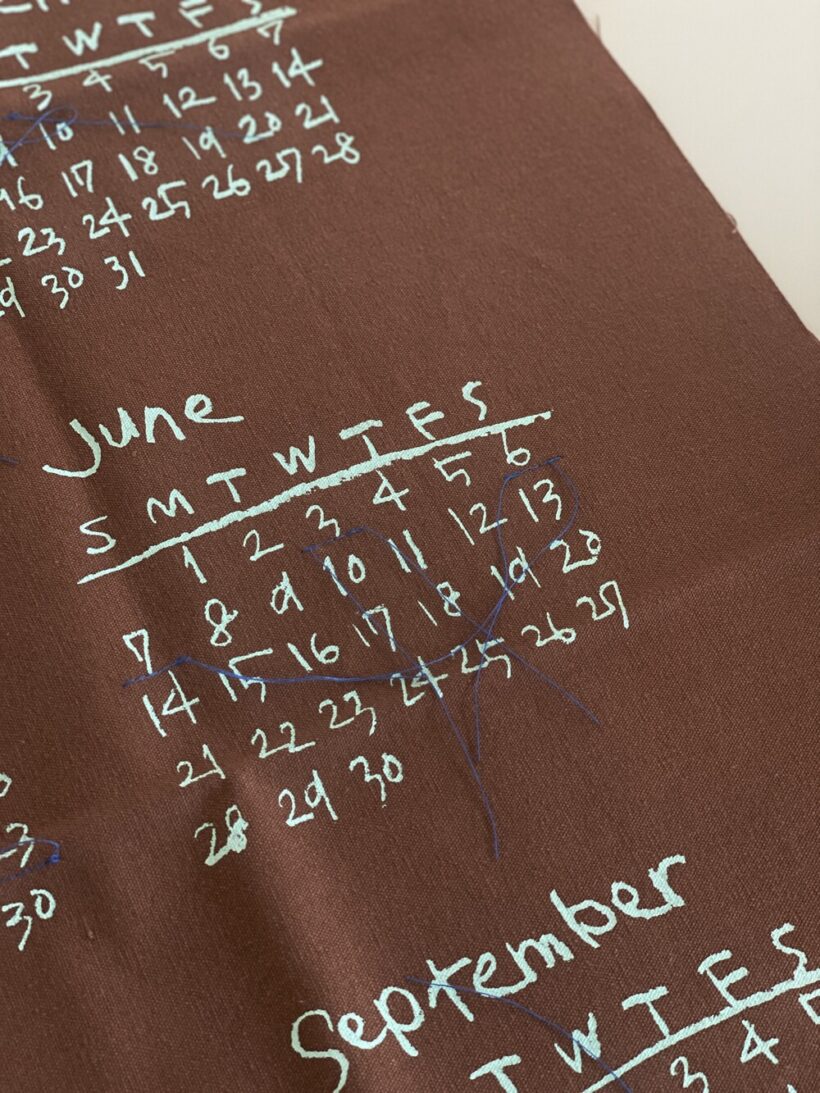 T W T F S
3 4 5 6 7
10 11 12 13 14
16 17 18 19 20 21
23 24 25 26 27 28
30 31
June
S M T W T F S
1 2 3 4 5 6
7 8 9 10 11 12 13
14 15 16 17 18 19 20
21 22 23 24 25 26 27
28 29 30
30
September
T W T F S
3 4